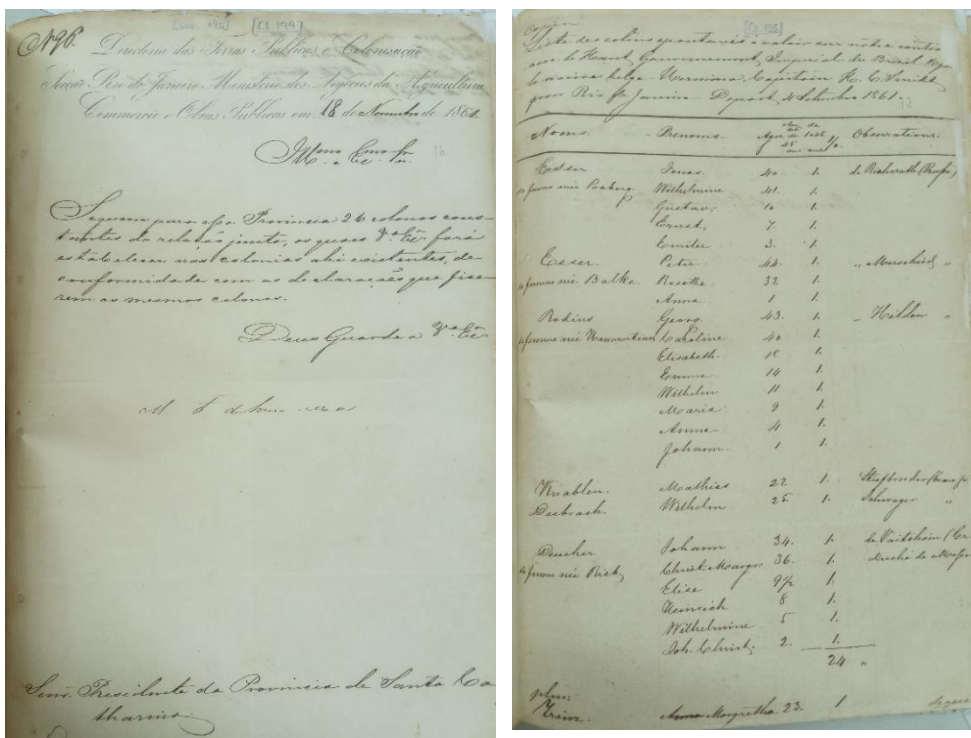 Nº 96.
[CI.1997]
Directoria das Terras Publicas e Colonisação
Secção Rio de Janeiro Ministerio dos Negocios da Agricultura
Commercio e Obras Publicas em 18 de Novembro de 1861.
Illmo e Exmo Snr.
16
Seguem para essa Provincia 26 colonos cons-
tantes da relação junta, os quaes Vª Exª fará
estabelecer nas colonias ahi existentes, de
conformidade com as declarações que fize-
rem os mesmos colonos.
Deus Guarde a Vª Exª
M. F. de Souza
Senr. Presidente da Provincia de Santa Ca
tharina
Copia
Liste des colons à valoir sur notre contrat
avec le Haut Gouvernement Imperial du Brésil
le navire belge Capitain H. C. Smidt
pour Rio de Janeiro Depart 4 Setembro 1861.
Noms. Prenoms. Age Observations.
Esser Jonas 40 1. de Richrath (Prusse)
sa femme née Wilhelmine 41. 1.
Gustav. 10 1.
Ernst, 7 1.
Emilie 3. 1.
Esser Peter 44. 1. „ „
sa femme née Balke. 32 1.
Anna 1 1.
Rodius Georg. 43. 1. „ Hilden „
sa femme née Caroline 40 1.
Elisabeth. 18 1.
Emma 14 1.
Wilhelm 11 1.
Maria 9 1.
Anna 4 1.
Johann. 1 1.
Knablen. Mathias 22 1. Stiefbruder
Wilhelm 25 1. Schwager „
Deucher Johann 34. 1.
sa femme née Christ. Margr. 36. 1. Duché de
Elise 9½ 1.
Heinrich 8 1.
Wilhelmine 5 1.
Joh. Christ. 2. 1.
24 „
plus
Anna Margretha 23. 1